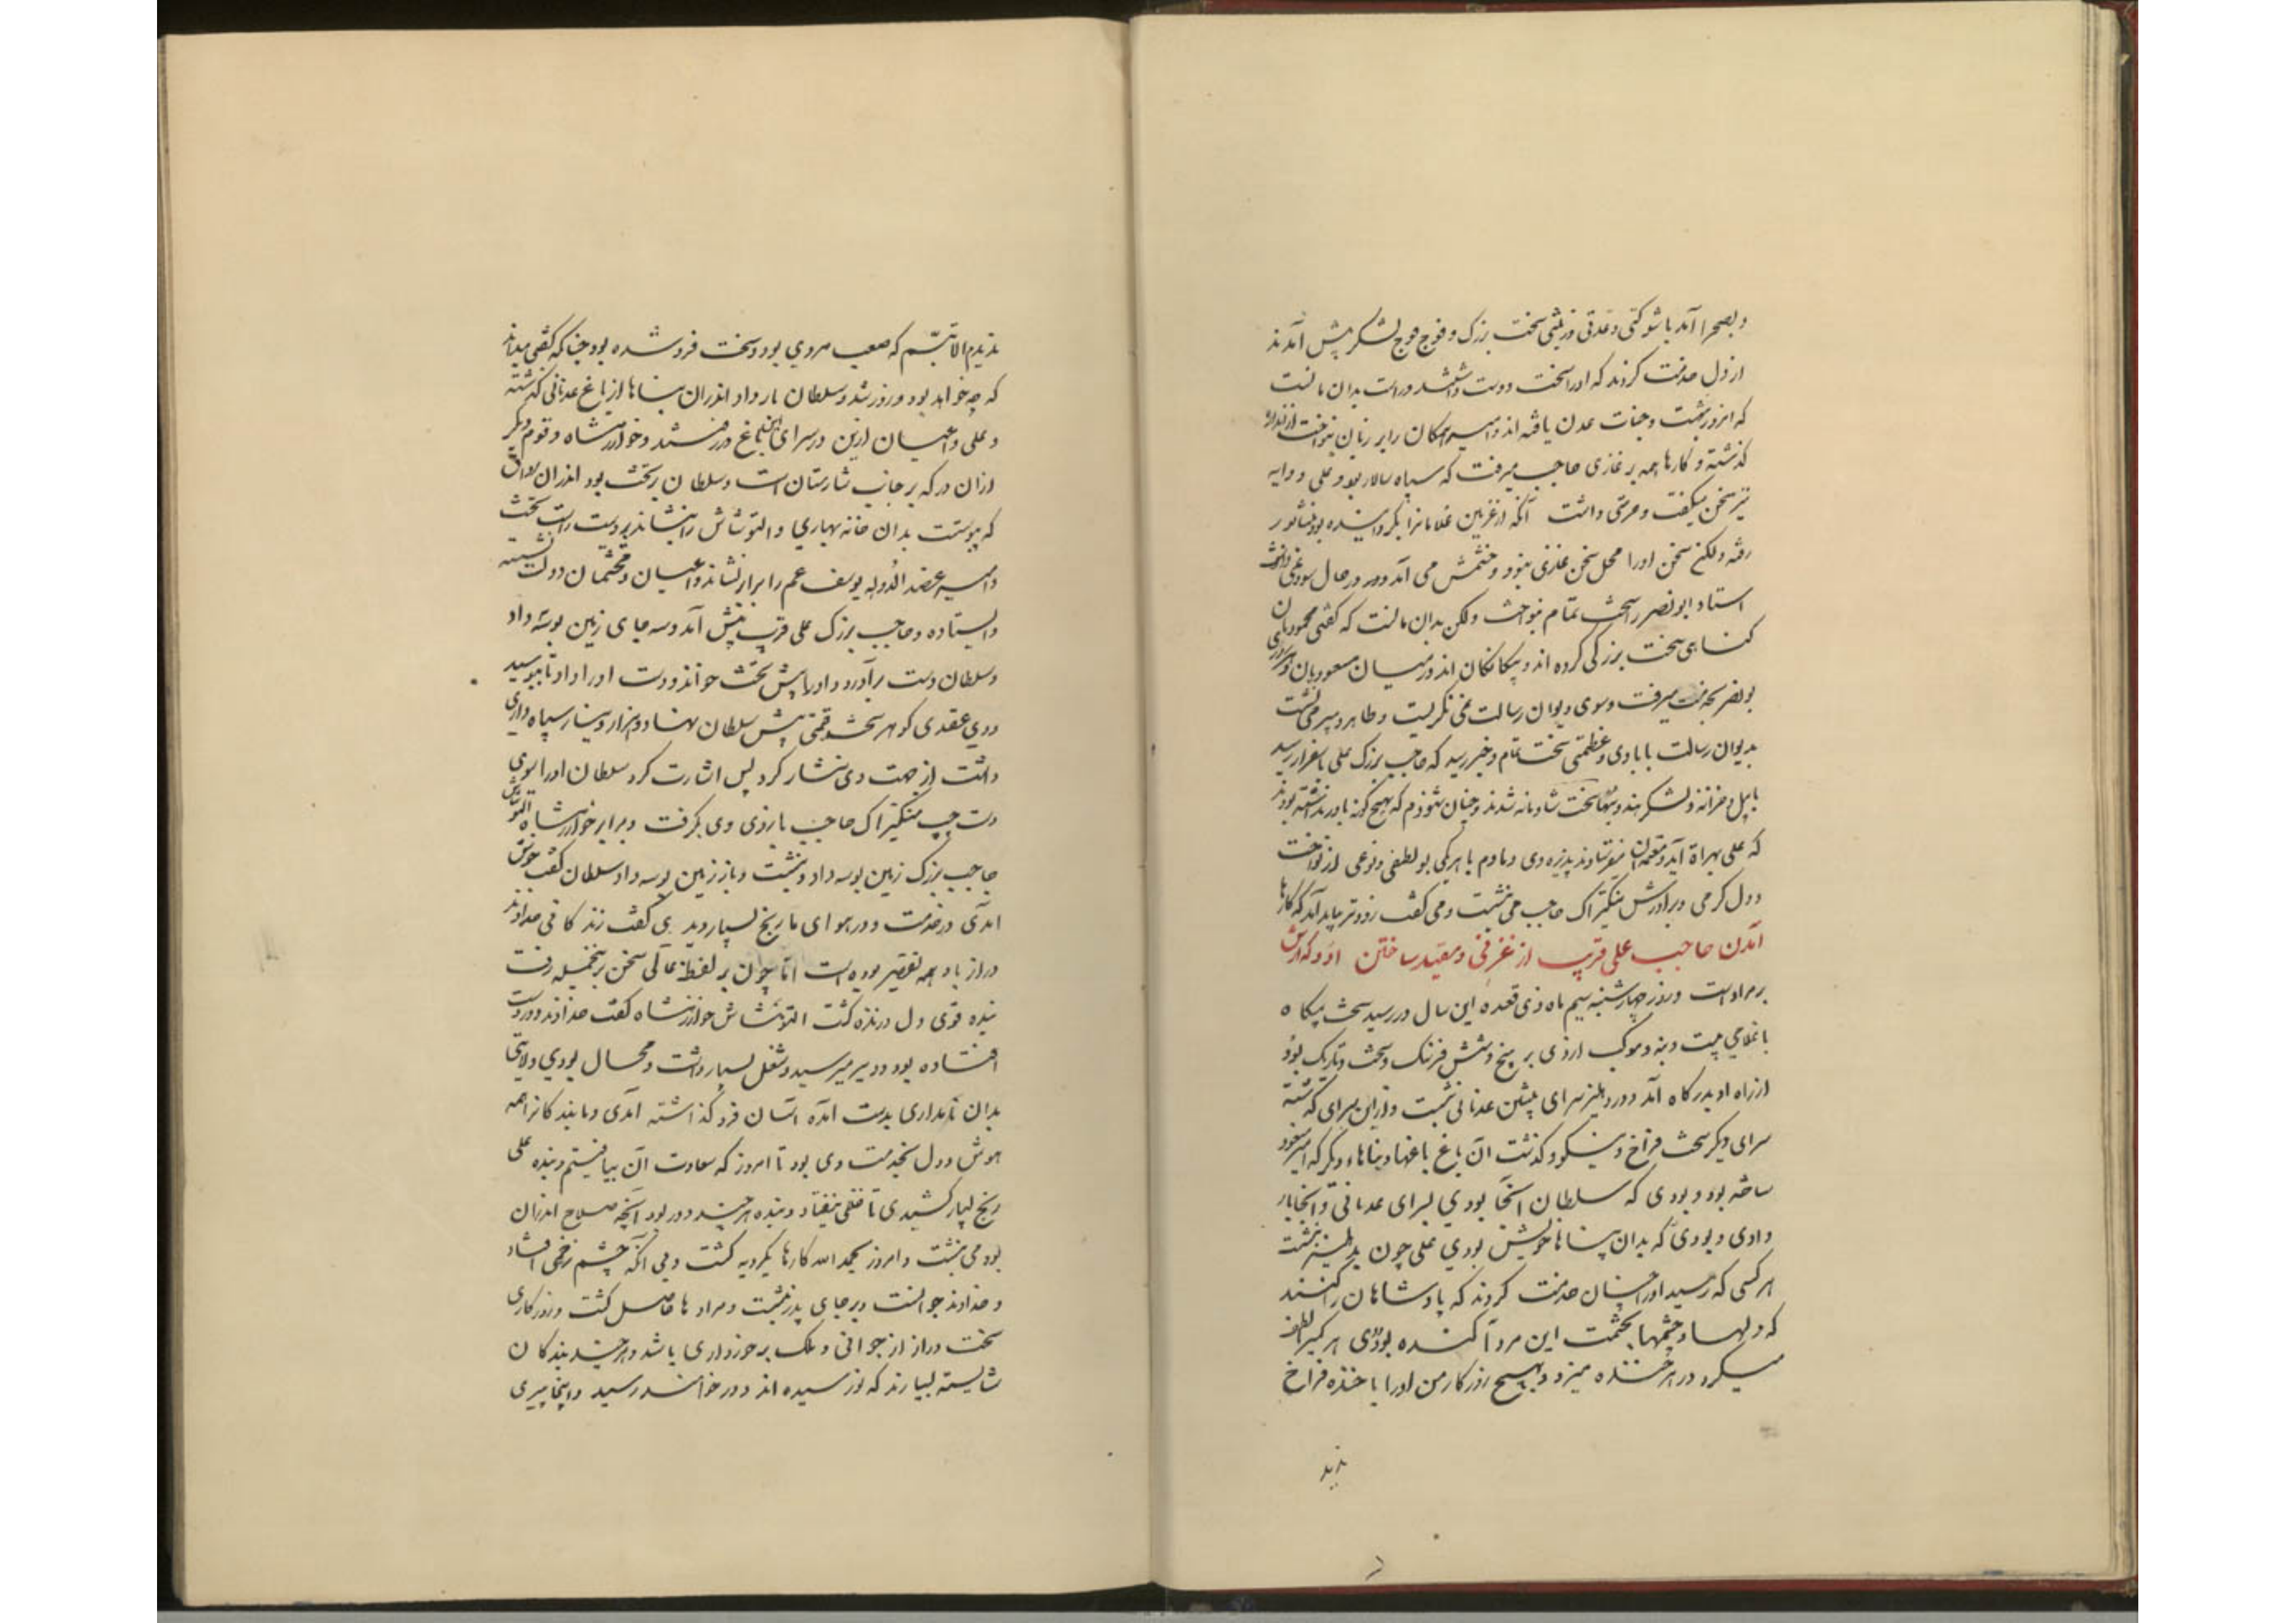 و بصحرا آمد با شوکتی و عدتی و زینتی سخت بزرک و فوج فوج لشکر پیش آمدند
از دل خدمت کردند که او را سخت دوست داشته‌اند و راست بدان مانست
که امروز بهشت و جنات عدن یافته اند و امیر همکان را بر زبان بنواخت از اندازه
کذشته و کارها همه بر غازی حاجب میرفت که سپاه سالار بود و علی دایه
نیز سخن میکفت و حرمتی داشت آنکه از غزنین غلامانرا بکردانیده بود و بنشابور
رفته ولکن سخن او را محل سخن غازی نبود و خشمش می آمد و در حال سود نمی داشت
استاد ابونصر را سخت تمام بنواخت ولکن بدان مانست که کفتی محمودیان
کناهی سخت بزرک کرده اند و بیکانکان اند در میان مسعودیان و هر روزی
بونصر بخدمت میرفت و سوی دیوان رسالت نمی نکریست و طاهر دبیر می نشست
بدیوان رسالت با بادی و عظمتی سخت تمام و خبر رسید که حاجب بزرک علی باسفزار رسید
با پیل و خزانه و لشکر هند و بنها سخت شادمانه شدند و چنان شنودم که بهیچ کونه باور نداشته بودند
که علی بهراة آید و معتمدان میفرستادند پذیره وی دمادم با هر یکی بو لطفی و نوعی از نواخت
و دل کرمی و برادرش منکیتراک حاجب می نبشت و می کفت زودتر بباید آمد که کارها
آمدن حاجب علی قریب از غزنی و مقید ساختن او و کدارش
بر مراد است و روز چهارشنبه سیم ماه ذی قعده این سال در رسید سخت پیکاه
با غلامی بیست و بنه و موکب از وی بر پنج و شش فرسنک و سخت تاریک بود
از راه او بدرکاه آمد و در دهلیز سرای پیشین عدنانی نشست و از این سرای کذشته
سرای دیکر سخت فراخ و نیکو و کذشت آن باغ باغها و بناهاء دیکر که امیر مسعود
ساخته بود و بودی که سلطان آنجا بودی بسرای عدنانی و آنجا بار
دادی و بودی که بدان بناها خویش بودی علی چون بدهلیز بنشست
هر کسی که رسید او را چنان خدمت کردند که پادشاهان را کنند
که دلها و چشمها بحشمت این مرد آکنده بودی هر کسیرا لطف
میکرد و زهرخنده میزد و بهیچ روزکار من او را با خنده فراخ
ندید
ندیدم الا تبسم که صعب مردی بود و سخت فرو شده بود چنانکه کفتی میداند
که چه خواهد بود و روز شد و سلطان بار داد اندران بناها از باغ عدنانی کذشته
و علی و اعیان ازین در سرای این باغ در رفتند و خوارزمشاه و قوم دیکر
ازان در که بر جانب شارستان است و سلطان بر تخت بود اندران رواق
که پیوست بدان خانه بهاری و التونتاش را بنشاندند بر دست راست تخت
و امیر عضد الدوله یوسف عم را برابر نشاند و اعیان و محتشمان دولت نشسته
و ایستاده و حاجب بزرک علی قریب پیش آمد و سه جای زمین بوسه داد
و سلطان دست برآورد و او را پیش تخت خواند و دست او را داد تا ببوسید
و وی عقدی کوهر سخت قیمتی پیش سلطان نهاد و هزار دینار سیاه داری
داشت از جهت وی نثار کرد پس اشارت کرد سلطان او را سوی
دست چپ منکیتراک حاجب بازوی وی بکرفت و برابر خوارزمشاه التونتاش
حاجب بزرک زمین بوسه داد و بنشست و باز زمین بوسه داد سلطان کفت خوش
آمدی در خدمت و در هوای ما رنج بسیار دیدی کفت زندکانی خداوند
دراز باد همه تقصیر بوده است اما چون بر لفظ عالی سخن بر نجمله رفت
بنده قوی دل و زنده کشت التونتاش خوارزمشاه کفت خداوند دور دست
افتاده بود و دیر میرسید و شغل بسیار داشت و محال بودی ولایتی
بدان نامداری بدست آمده آسان فرو کذاشته آمدی و ما بندکانرا همه
هوش و دل بخدمت وی بود تا امروز که سعادت آن بیافتیم و بنده علی
رنج بسیار کشیدی تا خللی نیفتاد و بنده هر چند دور بود آنچه صلاح اندران
بود می نبشت و امروز بحمد الله کارها یکرویه کشت و بی آنکه چشم زخمی افتاد
و خداوند جوانست و بر جای پدر نشست و مرادها حاصل کشت و روزکاری
سخت دراز از جوانی و ملک برخورداری باشد و هر چند بندکان
شایسته بسیارند که نو رسیده اند و در خواهند رسید و اینجا پیری